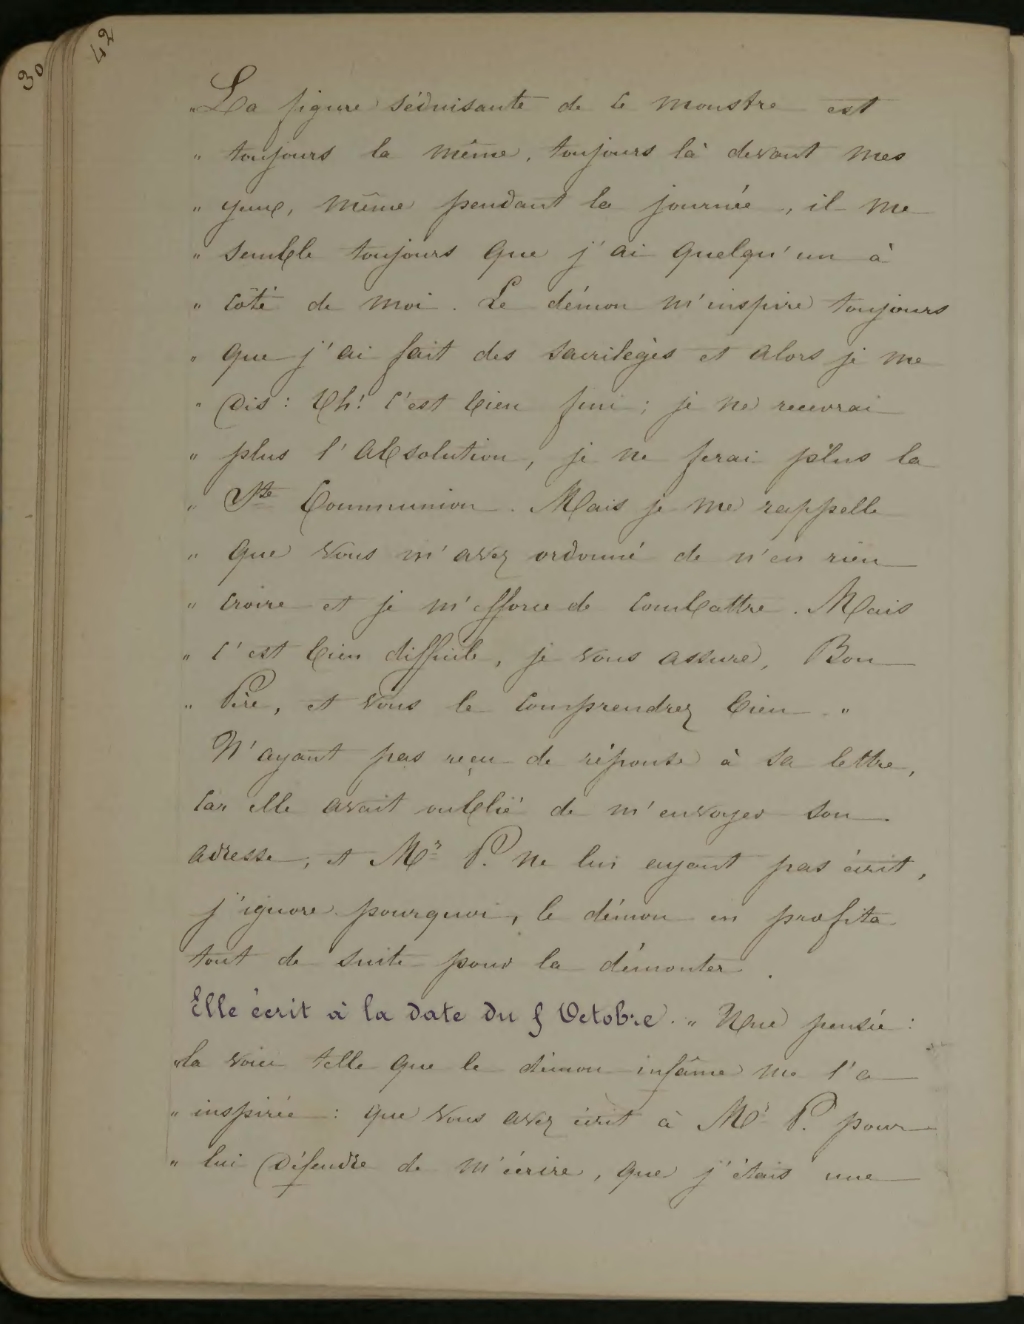 30
42
„ La figure séduisante de ce monstre est
„ toujours la même, toujours là devant mes
„ yeux, même pendant la journée, il me
„ semble toujours que j'ai quelqu'un à
„ côté de moi. Le démon m'inspire toujours
„ que j'ai fait des sacrilèges et alors je me
„ dis : Oh! c'est bien fini ; je ne recevrai
„ plus l'absolution, je ne ferai plus la
„ Ste Communion. Mais je me rappelle
„ que vous m'avez ordonné de n'en rien
„ croire et je m'efforce de combattre. Mais
„ c'est bien difficile, je vous assure, Bon
„ Père, et vous le comprendrez bien „
N'ayant pas reçu de réponse à sa lettre,
car elle avait oublié de m'envoyer son
adresse, et Mr P. ne lui ayant pas écrit,
j'ignore pourquoi, le démon en profita
tout de suite pour la démonter.
Elle écrit à la date du 5 Octobre. „ Une pensée :
„ la voici telle que le démon infâme me l'a
„ inspirée : que vous avez écrit à Mr P. pour
„ lui défendre de m'écrire, que j'étais une